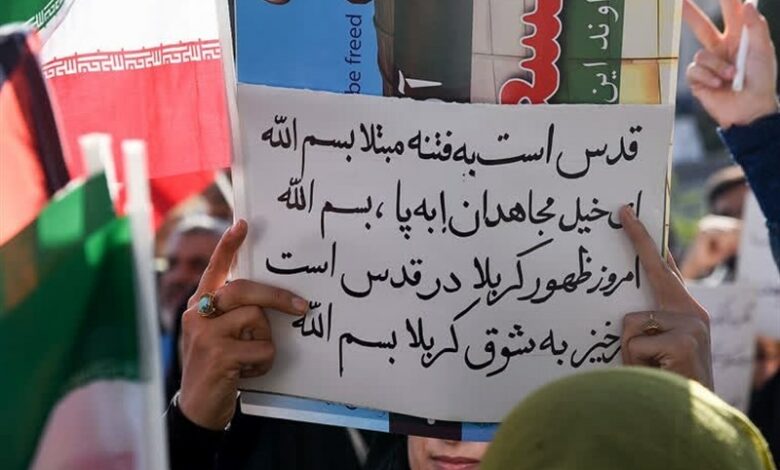 be freed
وند این
قدس است به فتنه مبتلا بسم الله
ای خیل مجاهدان به پا، بسم الله
امروز ظهور کربلا در قدس است
برخیز به شوق کربلا بسم الله